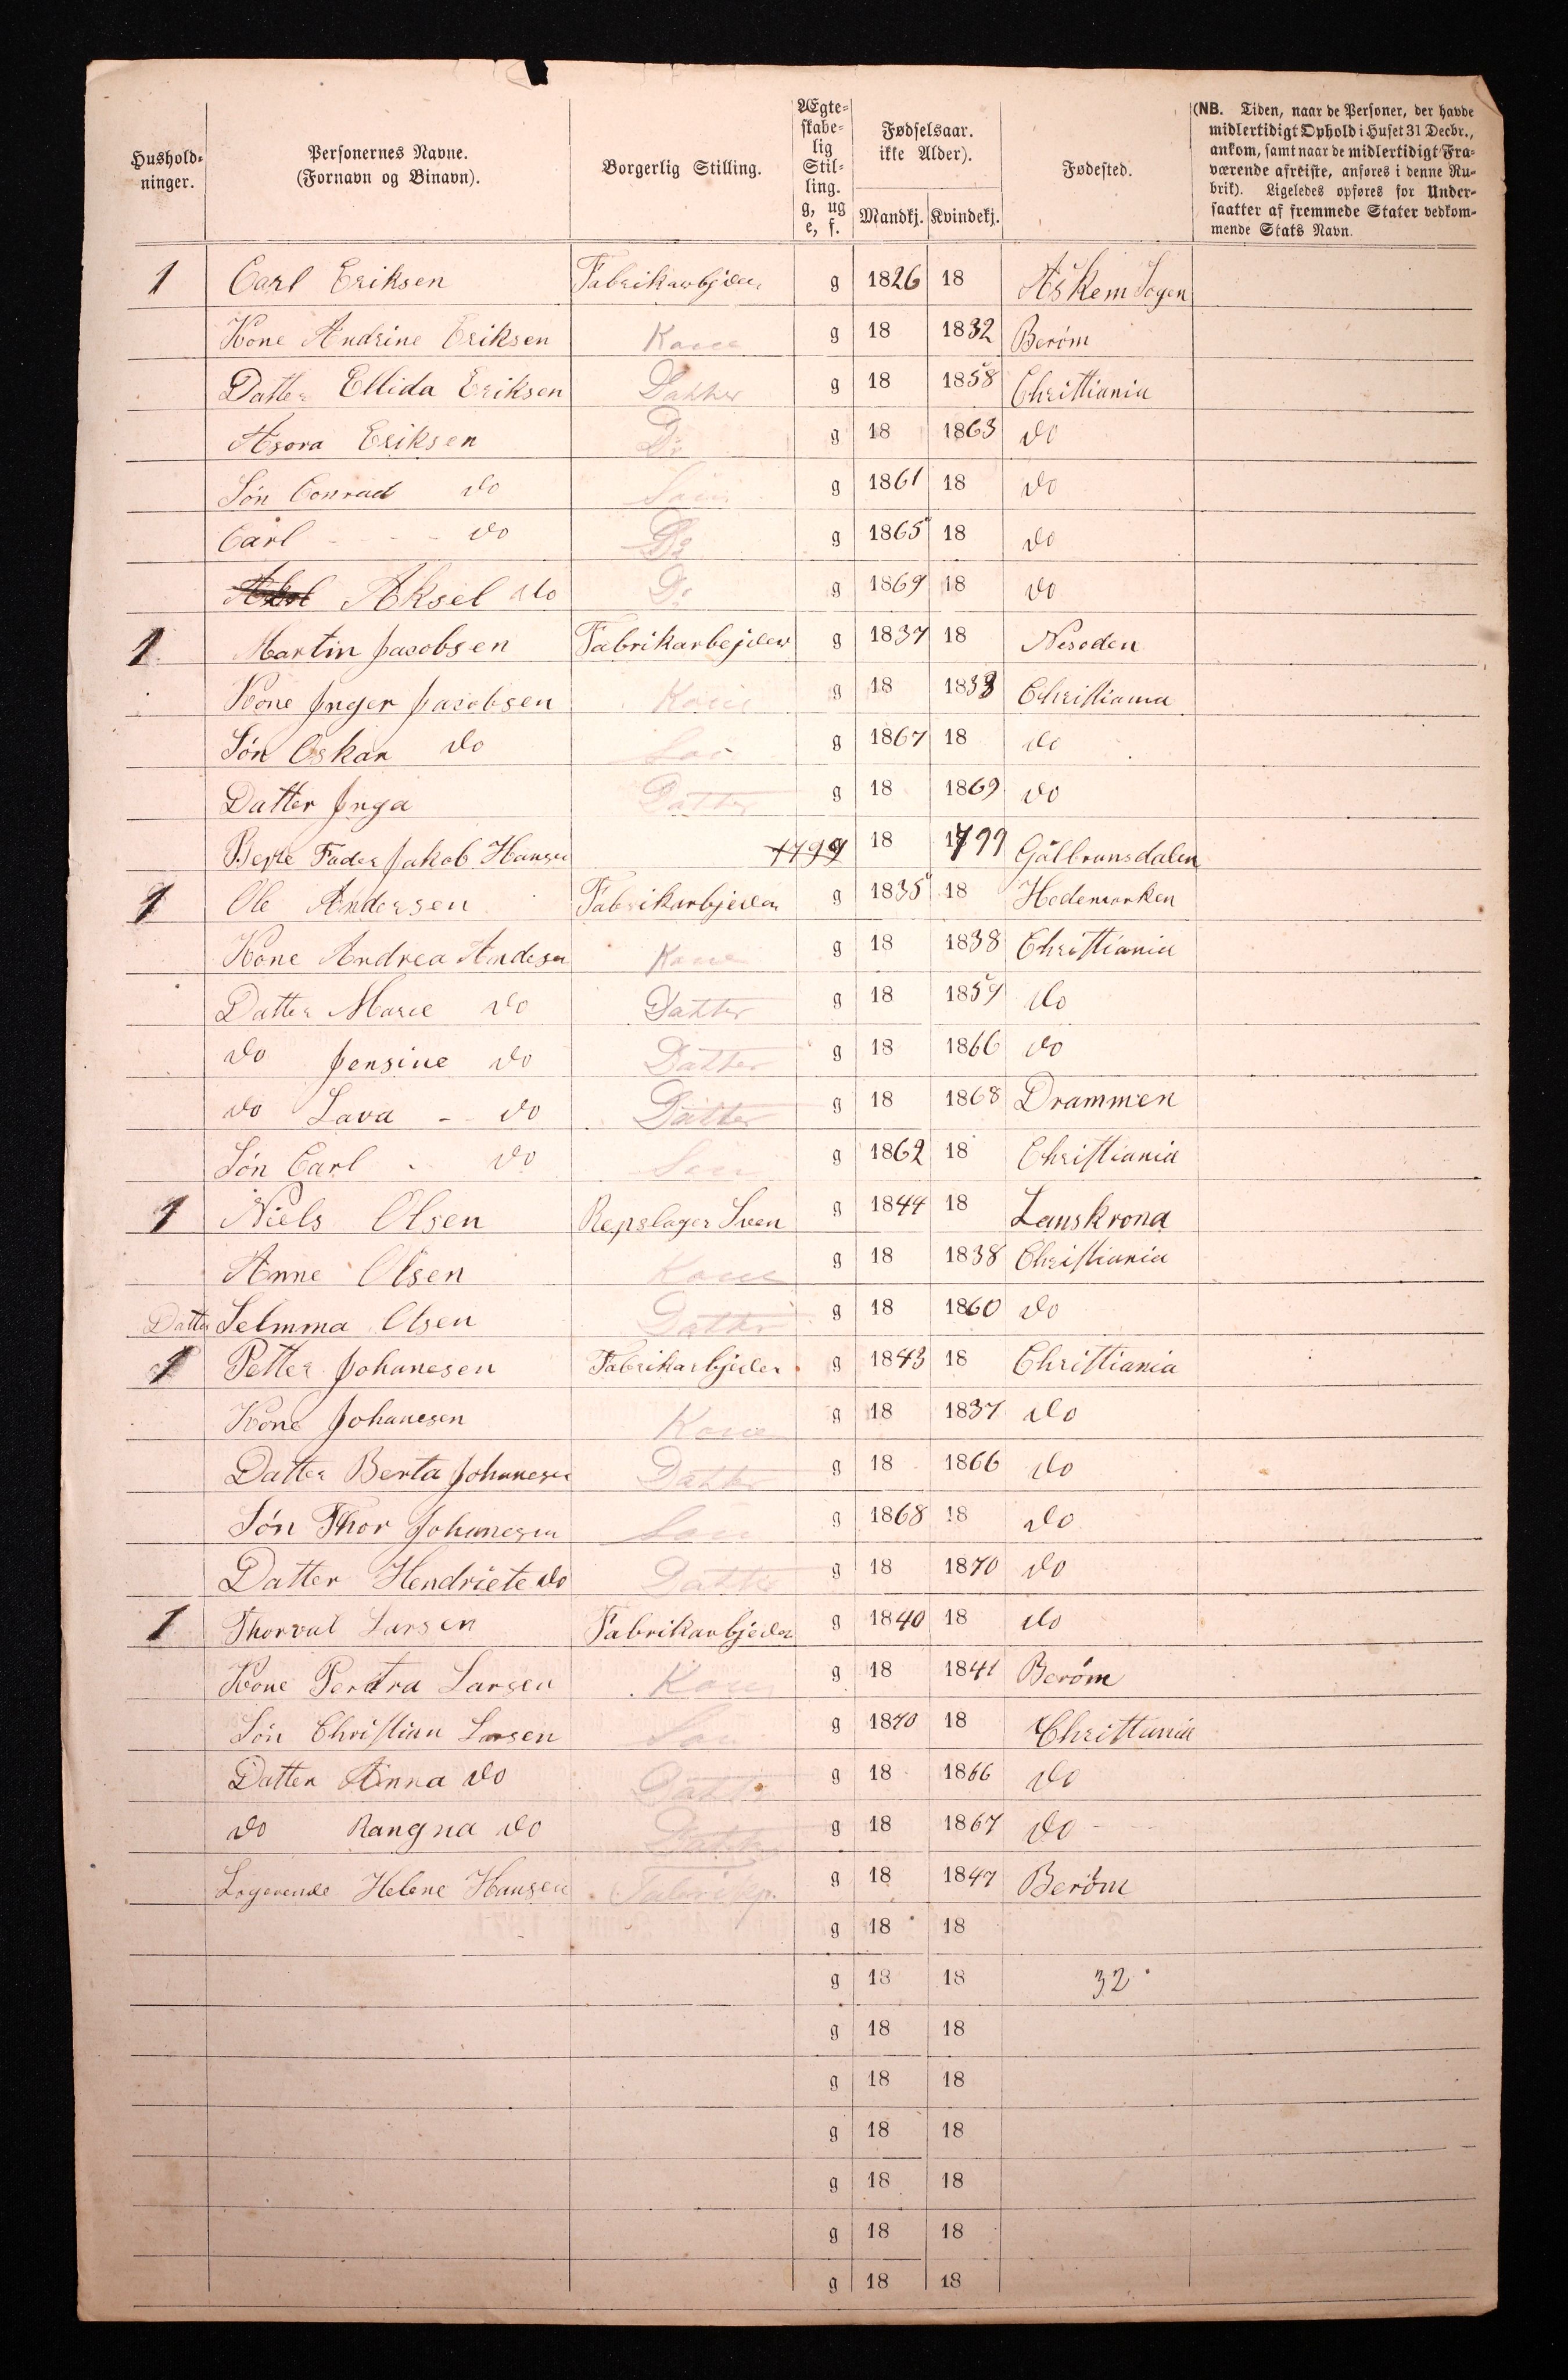 Hushold-
ninger.
Personernes Navne.
(Fornavn og Binavn).
Borgerlig Stilling.
Ægte-
skabe-
lig
Stil-
ling.
g, ug
e, f.
Fødselsaar.
ikke Alder).
Mandkj. Kvindekj.
Fødested.
(NB. Tiden, naar de Personer, der havde
midlertidigt Ophold i Huset 31 Decbr.,
ankom, samt naar de midlertidigt Fra-
værende afreiste, anføres i denne Ru-
brik). Ligeledes opføres for Under-
saatter af fremmede Stater vedkom-
mende Stats Navn.
1 Carl Eriksen Fabrikarbjder g 1826 18 Askem Sogen
Kone Andrine Eriksen Kone g 18 1832 Berøm
Datter Ellida Eriksen Datter g 18 1858 Christiania
Asora Eriksen Do g 18 1863 do
Søn Conrad do Søn g 1861 18 do
Carl - - - - do Do g 1865 18 do
Aksel do Do g 1869 18 do
1 Martin Jacobsen Fabrikarbejder g 1837 18 Nesoden
Kone Inger Jacobsen Kone g 18 1833 Christiania
Søn Oskar do Søn g 1867 18 do
Datter Inga Datter g 18 1869 do
Fader Jakob Hansen 1799 g 18 1799 Gålbransdalen
1 Ole Andersen Fabrikarbjeder g 1835 18 Hedemarken
Kone Andrea Andesen Kone g 18 1838 Christiania
Datter Marie do Datter g 18 1859 do
do Jensine do Datter g 18 1866 do
do Lava - - do Datter g 18 1868 Drammen
Søn Carl - do Søn g 1862 18 Christiania
1 Niels Olsen Repslager Sven g 1844 18 Lanskrona
Anne Olsen Kone g 18 1838 Christiania
Datter Selmma Olsen Datter g 18 1860 do
1 Petter Johanesen Fabrikarbjeder g 1843 18 Christiania
Kone Johanesen Kone g 18 1837 do
Datter Berta Johanesen Datter g 18 1866 do
Søn Thor Johanesen Søn g 1868 18 do
Datter Hendriete do Datter g 18 1870 do
1 Thorval Larsen Fabrikarbjeder g 1840 18 do
Kone Perdra Larsen Kone g 18 1841 Berøm
Søn Christian Larsen Søn g 1870 18 Christiania
Datter Anna do Datter g 18 1866 do
do Rangna do Datter g 18 1867 do
Logerende Helene Hansen g 18 1847 Berøm
g 18 18
g 18 18 32
g 18 18
g 18 18
g 18 18
g 18 18
g 18 18
g 18 18